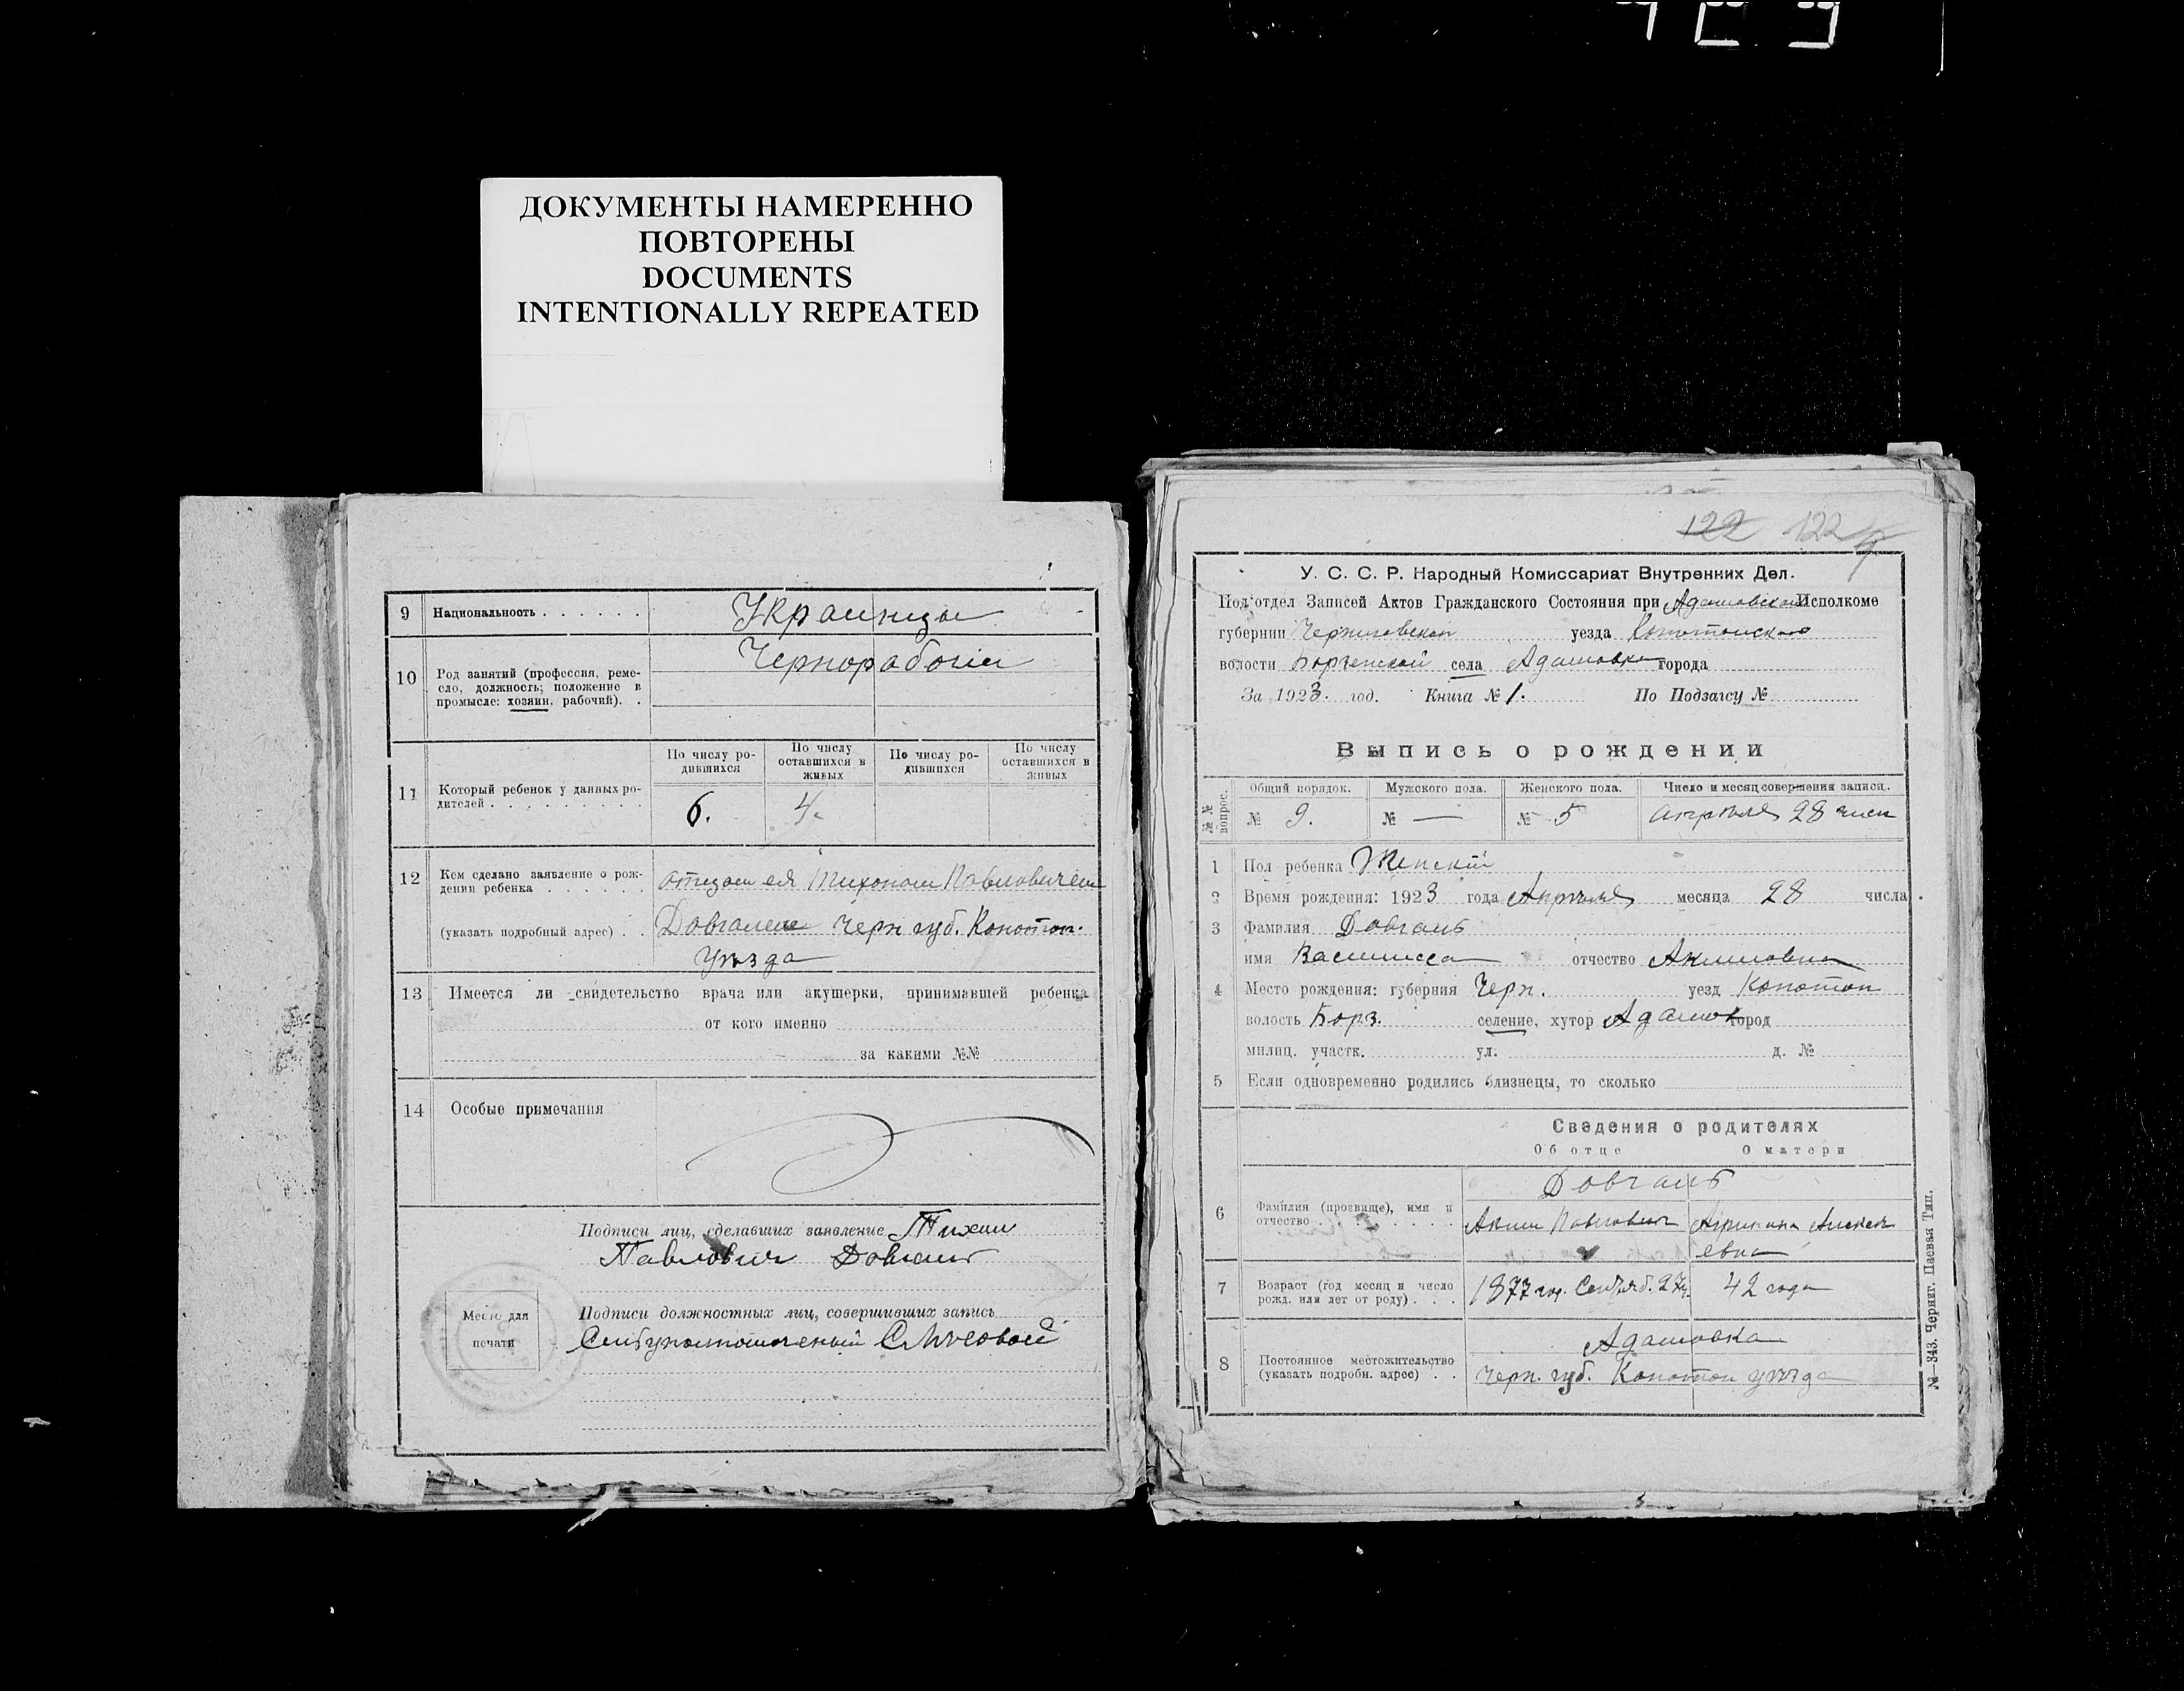 ДОКУМЕНТЫ НАМЕРЕННО
ПОВТОРЕНЫ
DOCUMENTS
INTENTIONALLY REPEATED
9 Национальность . . . . . . Украинцы
10 Род занятий (профессия, реме-
сло, должность; положение в
промысле: хозяин, рабочий). .
Чернорабочiи
11 Который ребенок у данных ро-
дителей . . . . . . . . .
По числу ро-
дившихся
По числу
оставшихся в
живых
По числу ро-
дившихся
По числу
оставшихся в
живых
6. 4.
12 Кем сделано заявление о рож-
дении ребенка . . . . . . отцом ея Тихоном Павловичем
(указать подробный адрес) . . Довгалем Черн губ. Конотоп.
Уѣзда
13 Имеется ли свидетельство врача или акушерки, принимавшей ребенка
от кого именно
за какими №№
14 Особые примечания
Подписи лиц, сделавших заявление Тихон
Павлович Довгаль
Место для
печати
Подписи должностных лиц, совершивших запись
122 122
У. С. С. Р. Народный Комиссариат Внутренних Дел.
Под'отдел Записей Актов Гражданского Состояния при Адамовском Исполкоме
губернии Черниговской уезда Конотопского
волости села Адамовка города
За 1923. год. Книга № 1. По Подзагсу №
Выпись о рождении
№№ вопрос.
Общий порядок. Мужского пола. Женского пола. Число и месяц совершения записи.
№ 9. № — № 5 апрѣля 28 числ
1 Пол ребенка Женскiй
2 Время рождения: 1923 года Апрѣля месяца 28 числа
3 Фамилия Довгаль
имя Василисса отчество Акимовна
4 Место рождения: губерния Черн. уезд Конотоп
волость Борз. селение, хутор Адамов город
милиц. участк. ул. д. №
5 Если одновременно родились близнецы, то сколько
Сведения о родителях
Об отце О матери
6 Фамилия (прозвище), имя и
отчество . . . . . . . .
Довгаль
Аким Павлович
евна
7 Возраст (год месяц и число
рожд. или лет от роду) . . .
1877 год. Сентяб. 27ч. 42 года
8 Постоянное местожительство
(указать подробн. адрес) . .
Адамовка
Черн. губ. Конотоп уѣзда
№—343. Черниг. Паевая Тип.